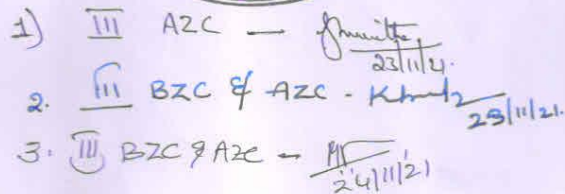 1) III AZC -
23/11/21.
2. III BZC & AZC -
23/11/21.
3. III BZC & AZC -
24/11/21